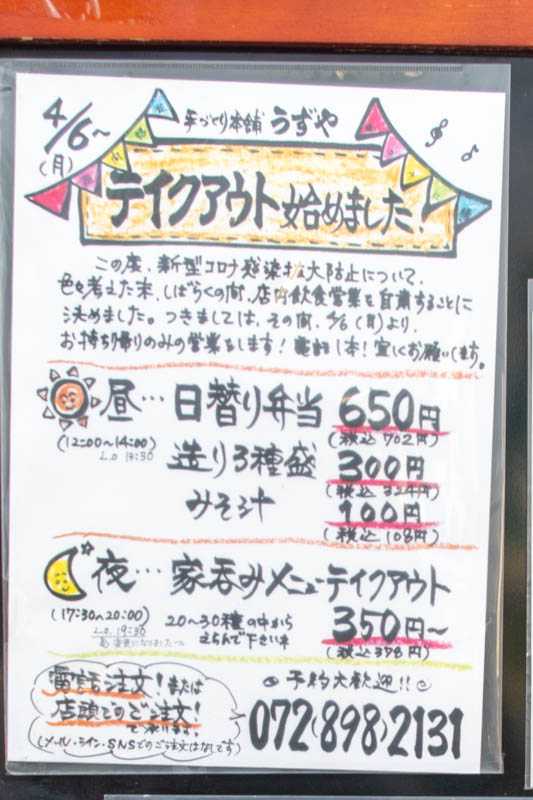 4/6~
(月)
手づくり本舗 うずや
テイクアウト始めました!
この度、新型コロナ感染拡大防止について、
色々考えた末、しばらくの間、店内飲食営業を自粛することに
決めました。つきましては、その間、4/6(月)より、
お持ち帰りのみの営業をします!電話1本!宜しくお願いします。
昼…日替り弁当 650円
(税込 702円)
(12:00~14:00)
L.O 13:30
造り3種盛 300円
(税込 324円)
みそ汁 100円
(税込 108円)
夜…家呑みメニューテイクアウト
(17:30~20:00)
L.O. 19:30
変更になりました
20~30種の中から
えらんで下さいネ
350円~
(税込 378円)
電話注文!または
店頭でのご注文!
で承ります。
(メール・ライン・SNSでのご注文はなしです)
予約大歓迎!!
072(898)2131